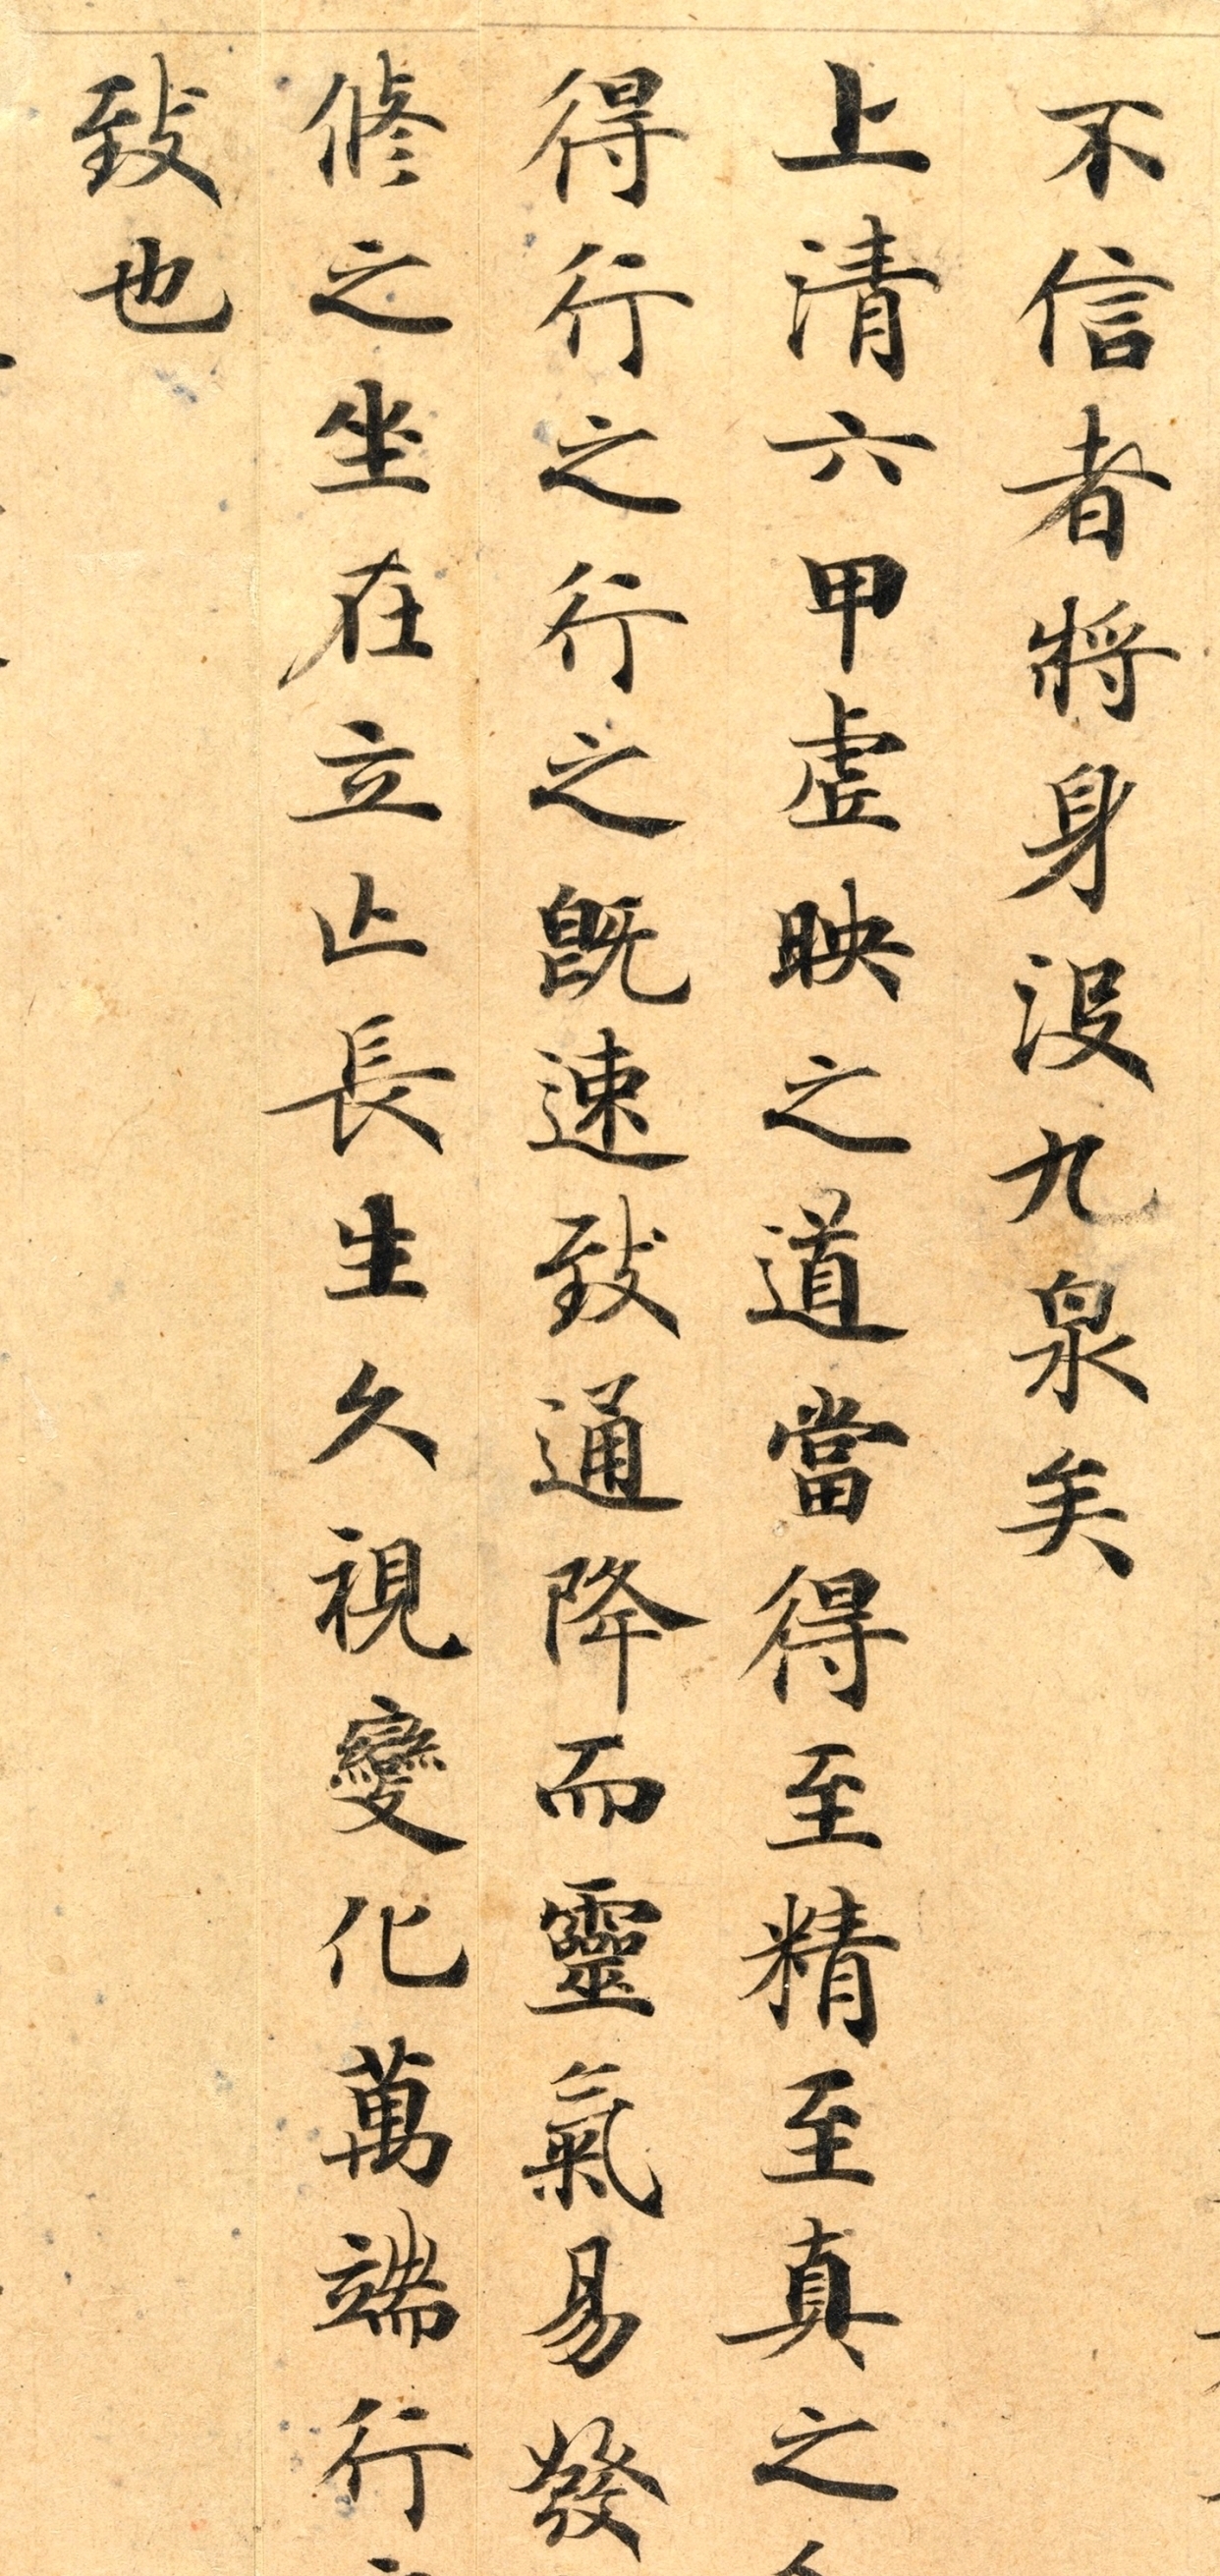 不信者將身没九泉矣
上清六甲虛映之道當得至精至真之
得行之行之既速致通降而靈氣易發
修之坐在立止長生久視變化萬端行
致也